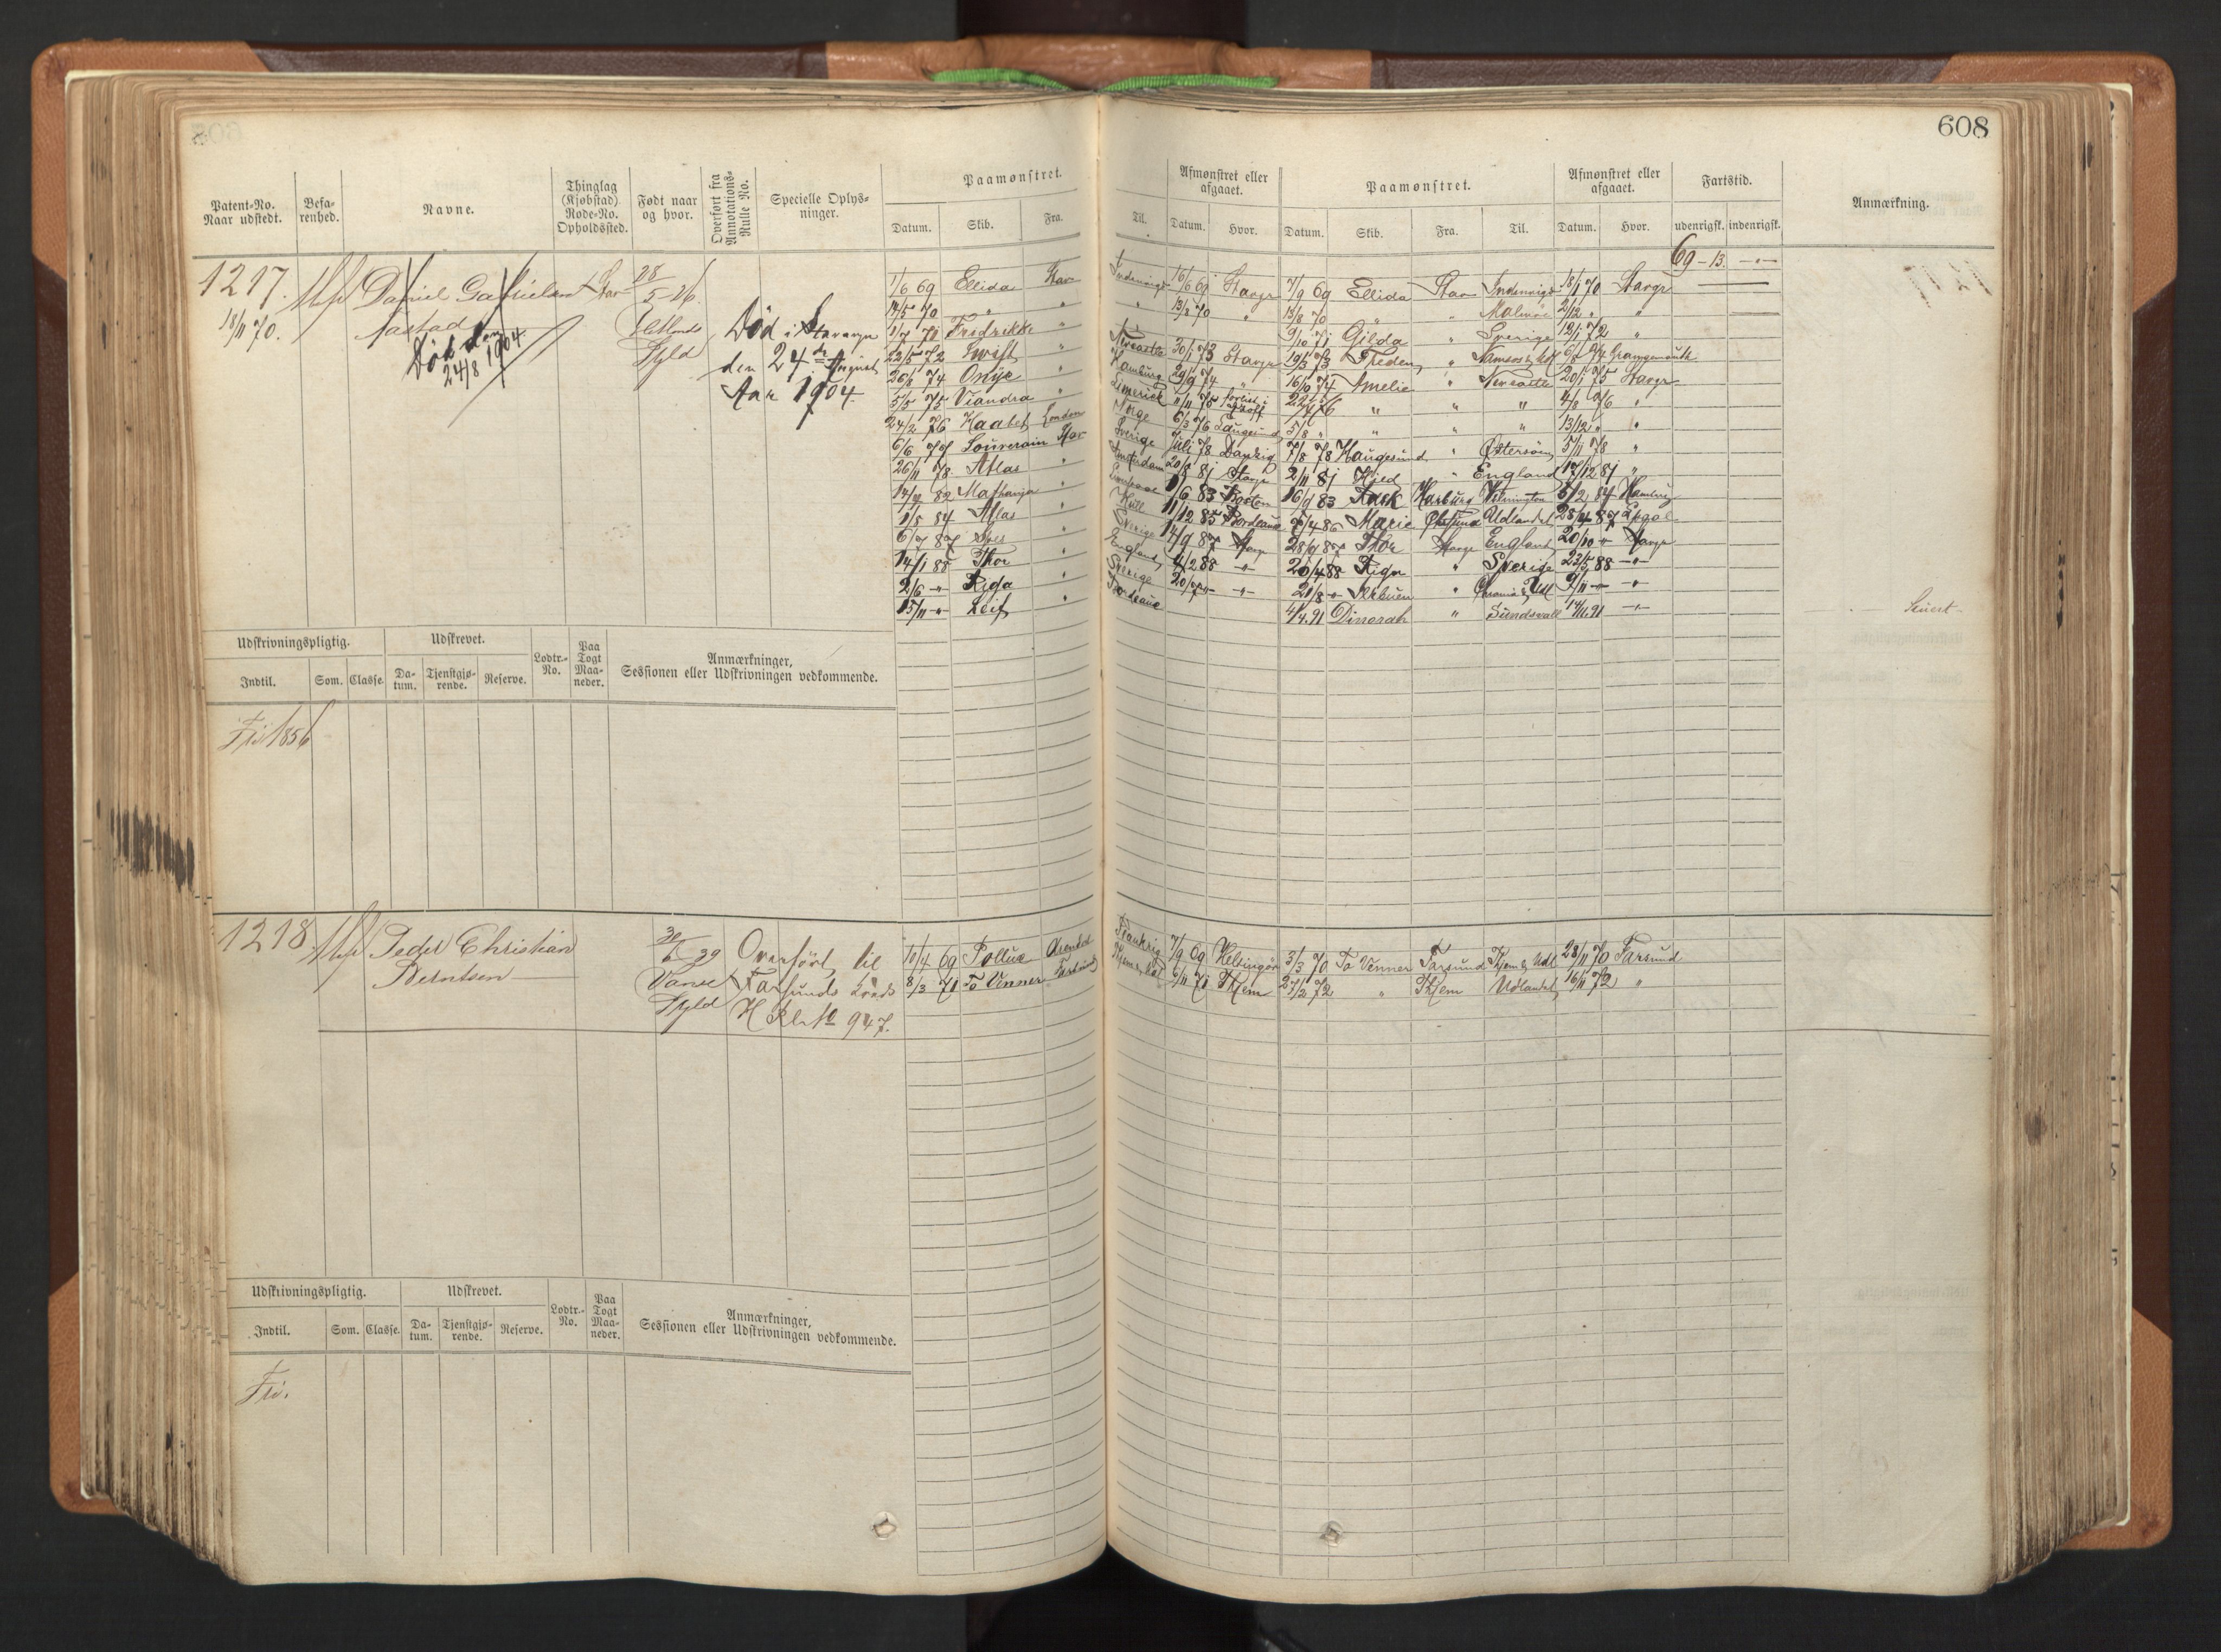 608
Patent-No.
Naar udstedt.
Befa-
renhed.
Navne.
Thinglag
(Kjøbstad)
Rode-No.
Opholdssted.
Født naar
og hvor.
Overført fra
Annotations-
Rulle No.
Specielle Oplys-
ninger.
Paamønstret.
Datum. Skib. Fra. Til.
Afmønstret eller
afgaaet.
Datum. Hvor.
Paamønstret.
Datum. Skib. Fra. Til.
Afmønstret eller
afgaaet.
Datum. Hvor.
Fartstid.
udenrigsk. indenrigsk.
Anmærkning.
69-13.
1217.
18/11 70.
Daniel Gabrielsen
Aastad
Død den
24/8 1904
Stav
28/5-26
Hetlands
Skjld
Død i Stavanger
den 24de August
Aar 1904.
1/6 69 Ellida Stav Indenrigs 16/6 69 Stavgr 7/9 69 Ellida Stav Indenrigs 18/1 70 Stavgr
14/5 70 " " " 13/8 70 " 13/8 70 " " Malmöe 2/12 " "
1/7 71 Fredrikke " 9/10 71 Gilda " Sverige 12/1 72 "
22/5 72 Swift " Newcastle 30/1 73 Stavgr 19/5 73 Freden " Namsos & Udl 6/2 74 Grangemouth
26/1 74 Onije " Hamburg 29/9 74 " 16/10 74 Amelie " Newcastle 20/1 75 Stavgr
5/5 75 Viandra " Limerick 11/11 75 forlist i " " " 4/8 76 "
24/2 76 Haabet London Norge 6/3 76 Laugesund 5/8 " " " " 13/12 " "
6/6 77 Souverain Stav Sverige Juli 78 Danzig 7/8 78 Haugesund " Østersøen 5/11 78 "
26/11 78 Atlas " Amsterdam 20/8 81 Stavgr 2/11 81 Hjed " England 17/12 81 "
14/9 82 Mathania " 1/6 83 Boston 16/9 83 Rask Harburg Wilmington 5/2 84 Hamburg
1/5 84 Atlas " Hull 11/12 85 Bordeaux 7/4 86 Marie Udlandet 28/4 87
6/7 87 " Sverige 14/9 87 Stavgr 28/9 87 Thor Stavgr England 20/10 " Stavgr
14/1 88 Thor " England 4/2 88 -"- 20/4 88 Riga " Sverige 23/5 88 -"-
2/6 " Riga " Sverige 20/7 " -"- 21/8 " " & Udl 9/11 " -"-
15/11 " Leif " Bordeaux 4/4.91 Dinorah " Sundsvall 14/11.91 -"-
Udskrivningspligtig. Udskrevet.
Lodtr.-
No.
Paa
Togt
Maa-
neder.
Anmærkninger,
Sessionen eller Udskrivningen vedkommende.
Indtil. Som. Classe. Da-
tum. Tjenstgjø-
rende. Reserve.
Fri 1856
1218.
Peder Christian
Berntsen
30/6 39
Vanse
Skjld
Overført til
Farsunds Kreds
H Rl. No 947.
10/4 69 Pollux Arendal Frankrig 7/9 69 Helsingør 3/3 70 To Venner Farsund Thjem & Udl 28/11 70 Farsund
8/3 71 To Venner Farsund Thjem & Udl 6/11 71 Thjem 27/2 72 " Thjem Udlandet 16/11 72 "
Udskrivningspligtig. Udskrevet.
Lodtr.-
No.
Paa
Togt
Maa-
neder.
Anmærkninger,
Sessionen eller Udskrivningen vedkommende.
Indtil. Som. Classe. Da-
tum. Tjenstgjø-
rende. Reserve.
Fri.